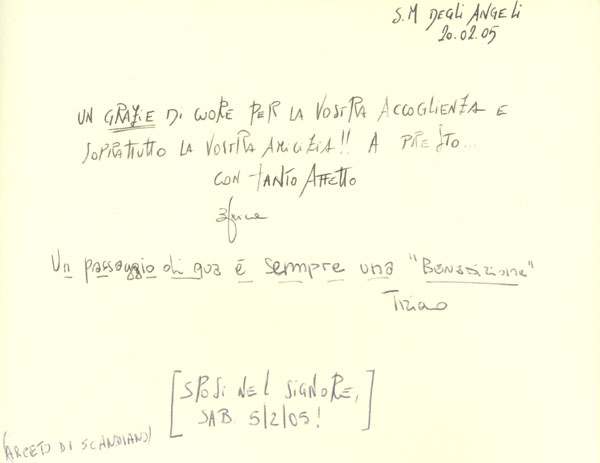 S.M DEGLI ANGELI
20.02.05
UN GRAZIE DI CUORE PER LA VOSTRA ACCOGLIENZA E
SOPRATTUTTO LA VOSTRA AMICIZIA!! A PRESTO...
CON TANTO AFFETTO
Un passaggio di qua è sempre una "Benedizione"
Tiziano
[SPOSI NEL SIGNORE,
SAB 5/2/05!]
(ARCETO DI SCANDIANO)